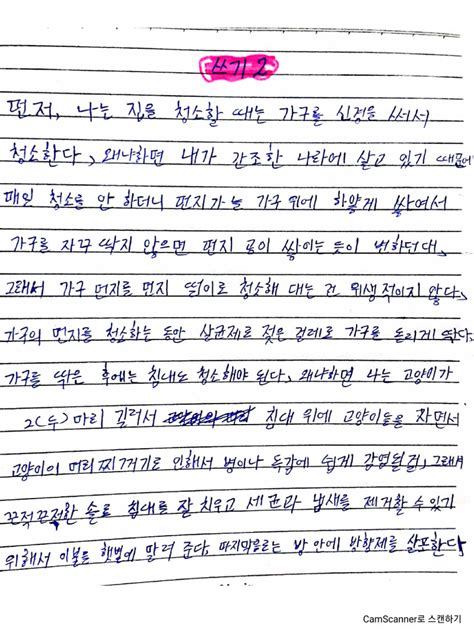 쓰기 2
먼저, 나는 집을 청소할 때는 가구를 신경을 써서
청소한다, 왜냐하면 내가 간조한 나라에 살고 있기 때문에
매일 청소를 안 하더니 편지가 늘 가구 위에 하얗게 쌓여서
가구를 자꾸 딱지 않으면 편지 공이 쌓이는 듯이 변하던대,
그래서 가구 먼지를 먼지 떨이로 청소해 대는 건 위생적이지 않다,
가구의 먼지를 청소하는 동안 살균제로 젖은 걸레로 가구를 돌리게 딱다.
가구를 딲은 후에는 침대도 청소해야 된다, 왜냐하면 나는 고양이가
2(두) 마리 길러서 침대 위에 고양이들을 자면서
고양이이 머리 찌꺼기로 인해서 병이나 독감에 쉽게 감염될건, 그래서
끈적끈적한 솔로 침대를 잘 치우고 세균과 냄새를 제거할 수 있기
위해서 이불을 햇볕에 말려 준다, 마지막물로는 방 안에 방향제를 살포한다
CamScanner로 스캔하기